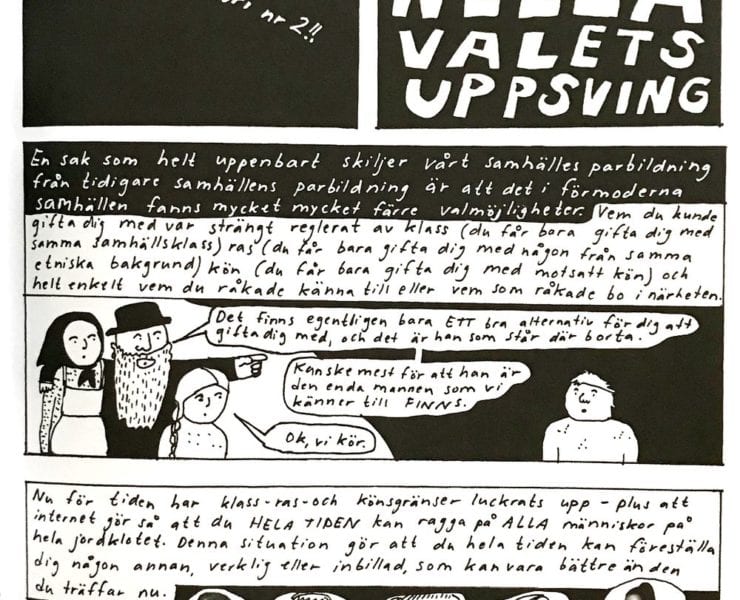 nr 2!!
VALETS
UPPSVING
En sak som helt uppenbart skiljer vårt samhälles parbildning
från tidigare samhällens parbildning är att det i förmoderna
samhällen fanns mycket mycket färre valmöjligheter. Vem du kunde
gifta dig med var strängt reglerat av klass (du får bara gifta dig med
samma samhällsklass) ras (du får bara gifta dig med någon från samma
etniska bakgrund) kön (du får bara gifta dig med motsatt kön) och
helt enkelt vem du råkade känna till eller vem som råkade bo i närheten.
Det finns egentligen bara ETT bra alternativ för dig att
gifta dig med, och det är han som står där borta.
Kanske mest för att han är
den enda mannen som vi
känner till FINNS.
Ok, vi kör.
Nu för tiden har klass-ras-och könsgränser luckrats upp - plus att
internet gör så att du HELA TIDEN kan ragga på ALLA människor på
hela jordklotet. Denna situation gör att du hela tiden kan föreställa
dig någon annan, verklig eller inbillad, som kan vara bättre än den
du träffar nu.